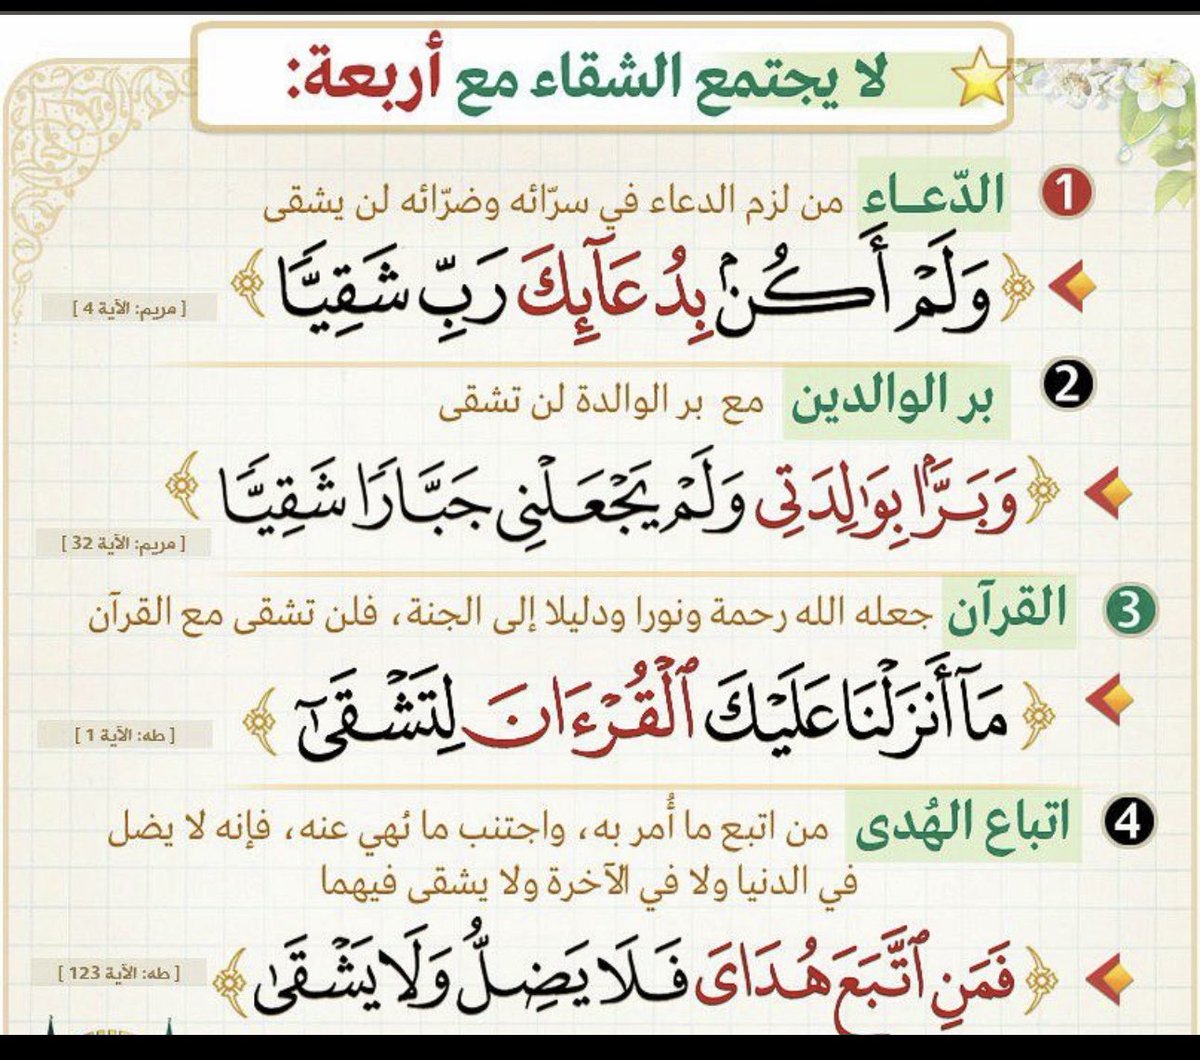 لا يجتمع الشقاء مع أربعة:
1 الدّعـاء من لزم الدعاء في سرّائه وضرّائه لن يشقى
﴿ وَلَمْ أَكُنۢ بِدُعَآئِكَ رَبِّ شَقِيًّا ﴾
[ مريم: الآية 4 ]
2 بر الوالدين مع بر الوالدة لن تشقى
﴿ وَبَرًّۢا بِوَٰلِدَتِى وَلَمْ يَجْعَلْنِى جَبَّارًا شَقِيًّا ﴾
[ مريم: الآية 32 ]
3 القرآن جعله الله رحمة ونورا ودليلا إلى الجنة، فلن تشقى مع القرآن
﴿ مَآ أَنزَلْنَا عَلَيْكَ ٱلْقُرْءَانَ لِتَشْقَىٰٓ ﴾
[ طه: الآية 1 ]
4 اتباع الهُدى من اتبع ما أُمر به، واجتنب ما نُهي عنه، فإنه لا يضل
في الدنيا ولا في الآخرة ولا يشقى فيهما
﴿ فَمَنِ ٱتَّبَعَ هُدَاىَ فَلَا يَضِلُّ وَلَا يَشْقَىٰ ﴾
[ طه: الآية 123 ]